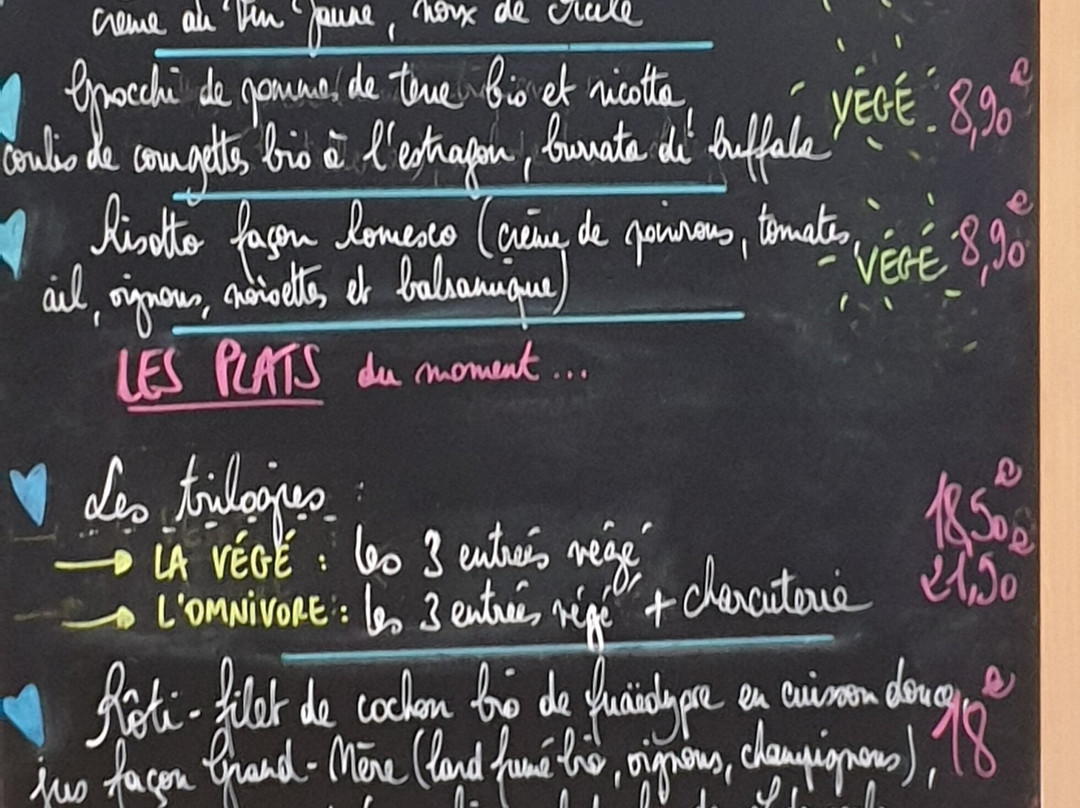 crème au Vin Jaune, noix de
Gnocchi de pomme de terre bio et ricotta,
VÉGÉ 8,90€
coulis de courgettes bio à l'estragon, burrata di buffala
Risotto façon Romesco (crème de poivrons, tomates,
VÉGÉ 8,90€
ail, oignons, noisettes et balsamique)
LES PLATS du moment...
Les trilogies :
18,50€
→ LA VÉGÉ : les 3 entrées végé
21,50€
→ L'OMNIVORE : les 3 entrées végé + charcuterie
Rôti-filet de cochon bio de en cuisson douce,
18€
jus façon Grand-Mère (lard fumé bio, oignons, champignons),